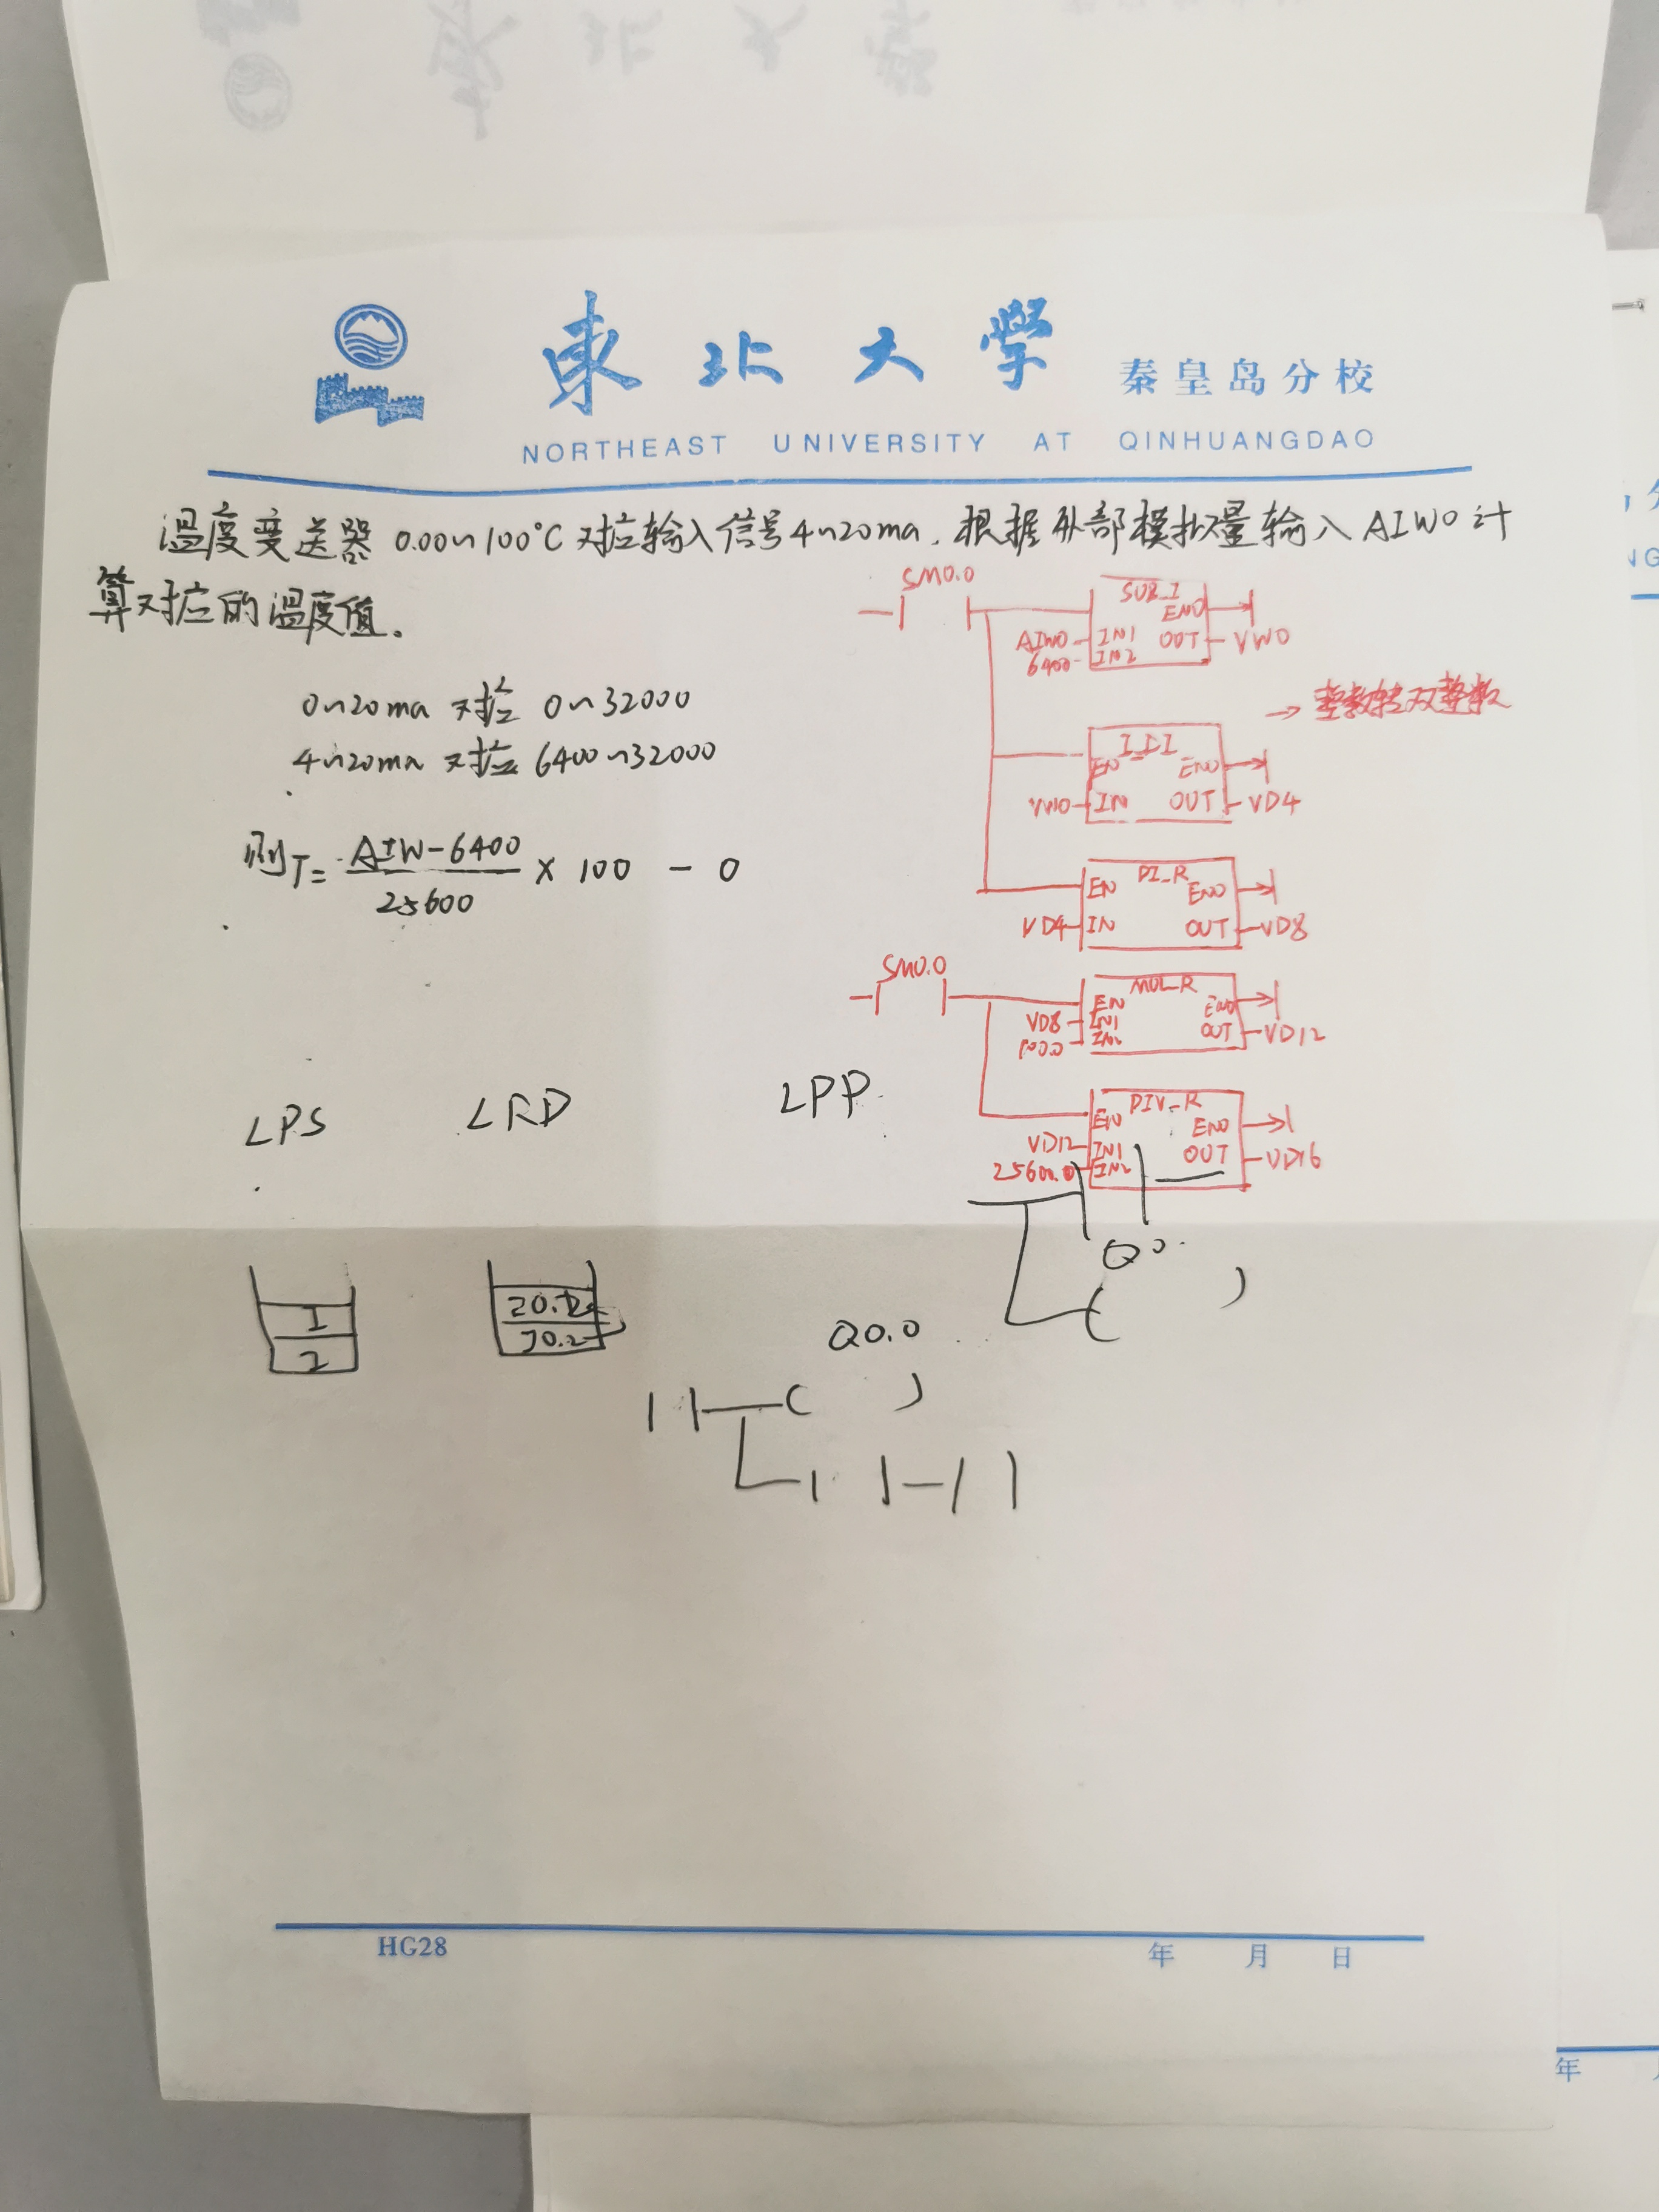 東北大學 秦皇岛分校
NORTHEAST UNIVERSITY AT QINHUANGDAO
温度变送器 0.00~100°C 对应输入信号4~20ma，根据外部模拟量输入AIW0计
算对应的温度值.
0~20ma 对应 0~32000
4~20ma 对应 6400~32000
则T= AIW-6400 × 100 - 0
25600
SM0.0
SUB_I
ENO
AIW0 IN1 OUT VW0
6400 IN2
→ 整数转双整数
I_DI
EN ENO
VW0 IN OUT VD4
DI_R
EN ENO
VD4 IN OUT VD8
SM0.0
MUL_R
EN ENO
VD8 IN1 OUT VD12
100.0 IN2
DIV_R
EN ENO
VD12 IN1 OUT VD16
25600.0 IN2
LPS LRD LPP
1
2
I0.2
Q0.
Q0.0
HG28
年 月 日
年